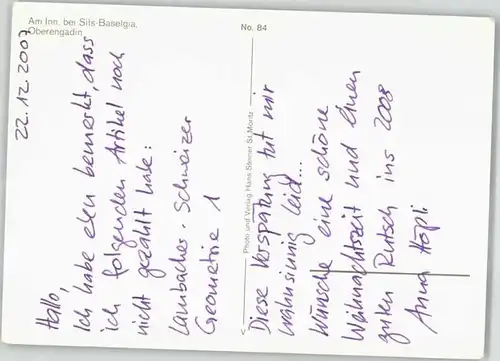 Am Inn, bei Sils-Baselgia,
Oberengadin
No. 84
Photo und Verlag Hans Steiner St. Moritz
22.12.2007
Hallo,
Ich habe eben bemerkt, dass
ich folgenden Artikel noch
nicht gezahlt habe:
Lambacher · Schweizer
Geometrie 1
Diese Verspätung tut mir
wahnsinnig leid...
Wünsche eine schöne
Weihnachtszeit und einen
guten Rutsch ins 2008
Anna Höpli